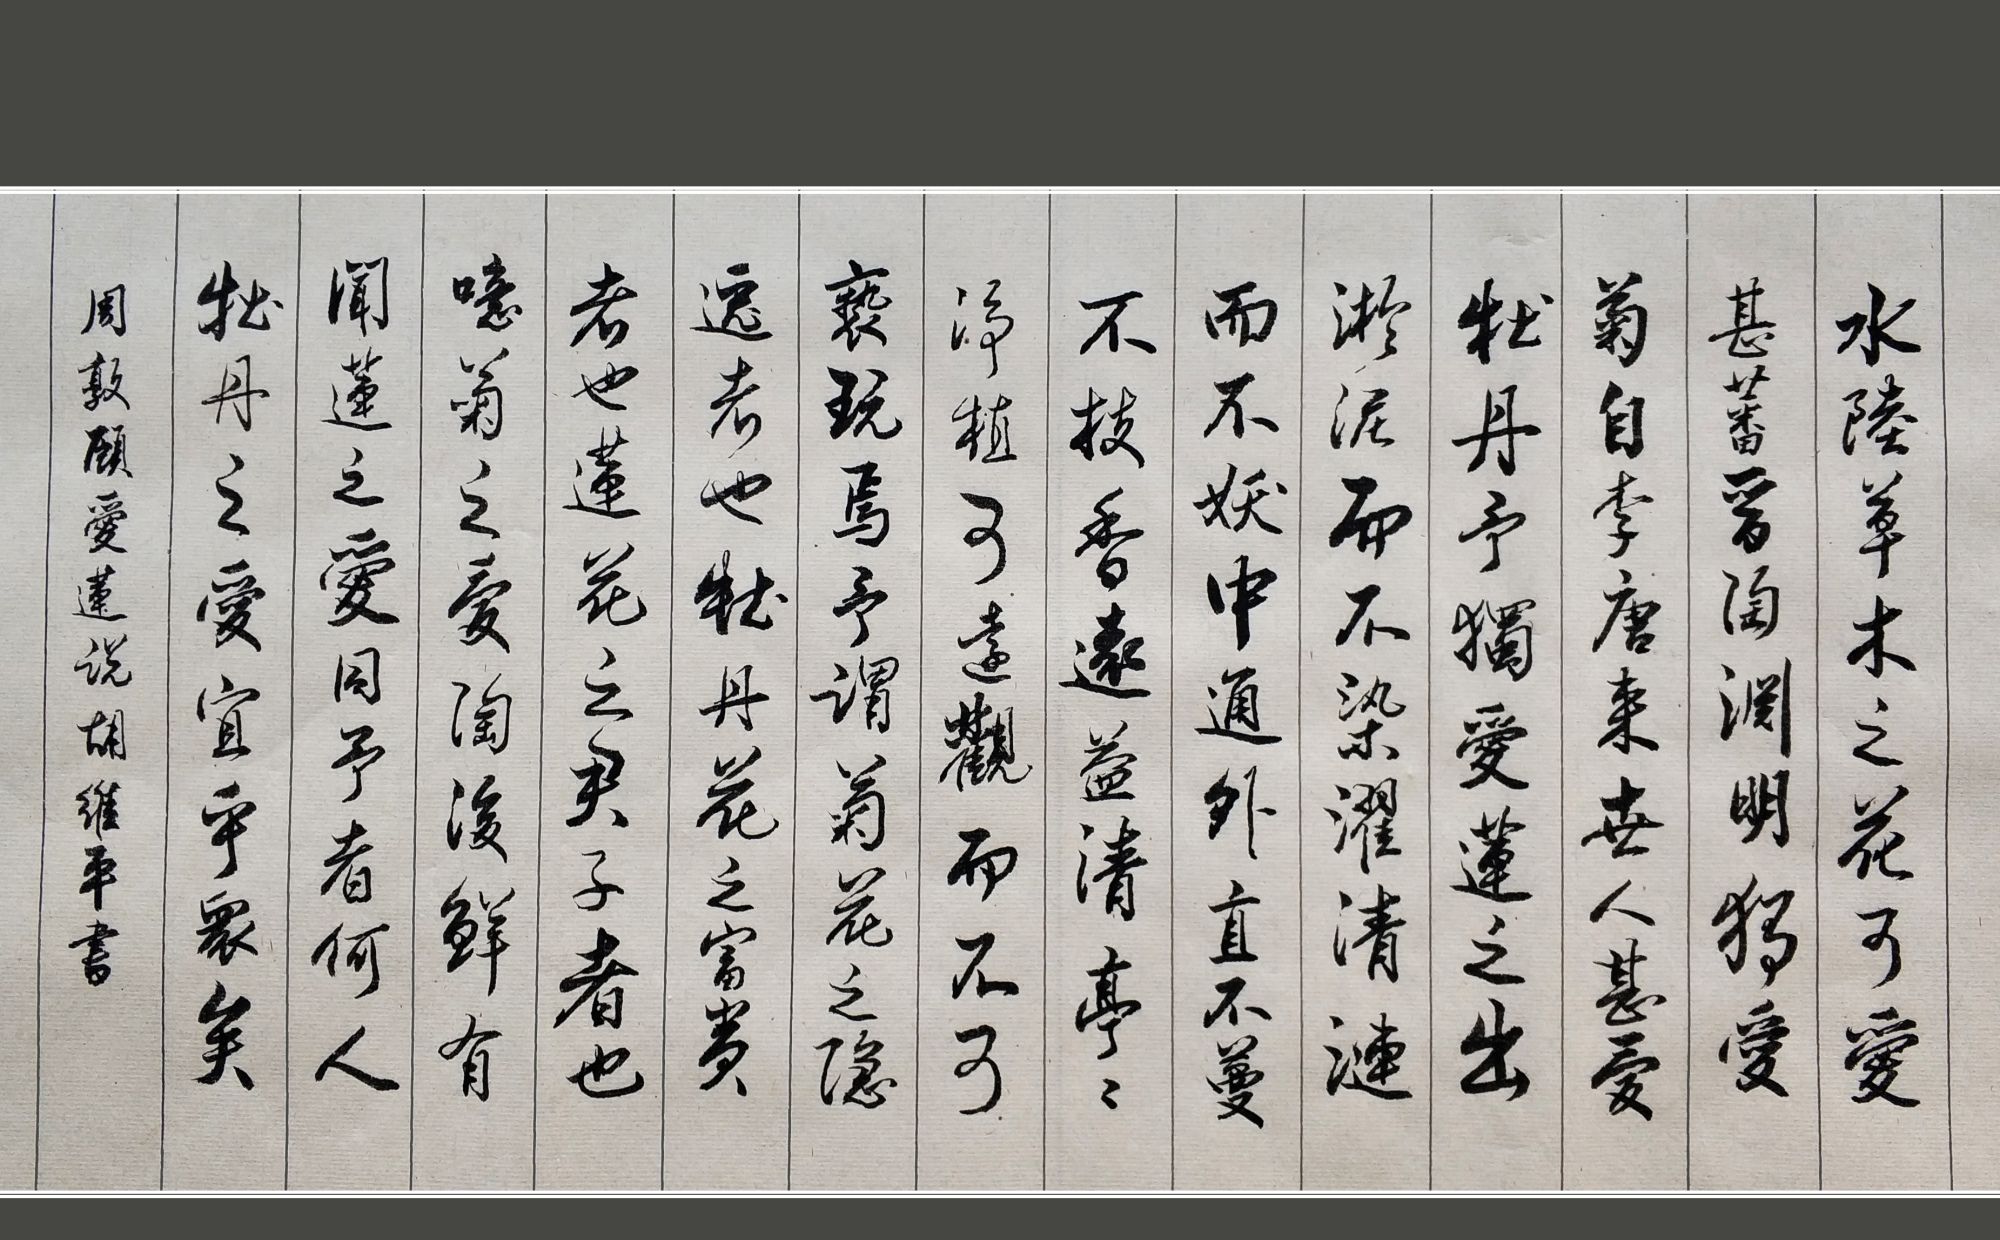 水陸草木之花可愛
甚蕃晉陶淵明独愛
菊自李唐来世人甚愛
牡丹予獨愛蓮之出
淤泥而不染濯清漣
而不妖中通外直不蔓
不枝香遠益清亭〻
淨植可遠觀而不可
褻玩焉予謂菊花之隐
逸者也牡丹花之富贵
者也蓮花之君子者也
噫菊之爱陶後鮮有
聞蓮之愛同予者何人
牡丹之愛宜乎眾矣
周敦颐愛蓮説胡維平書